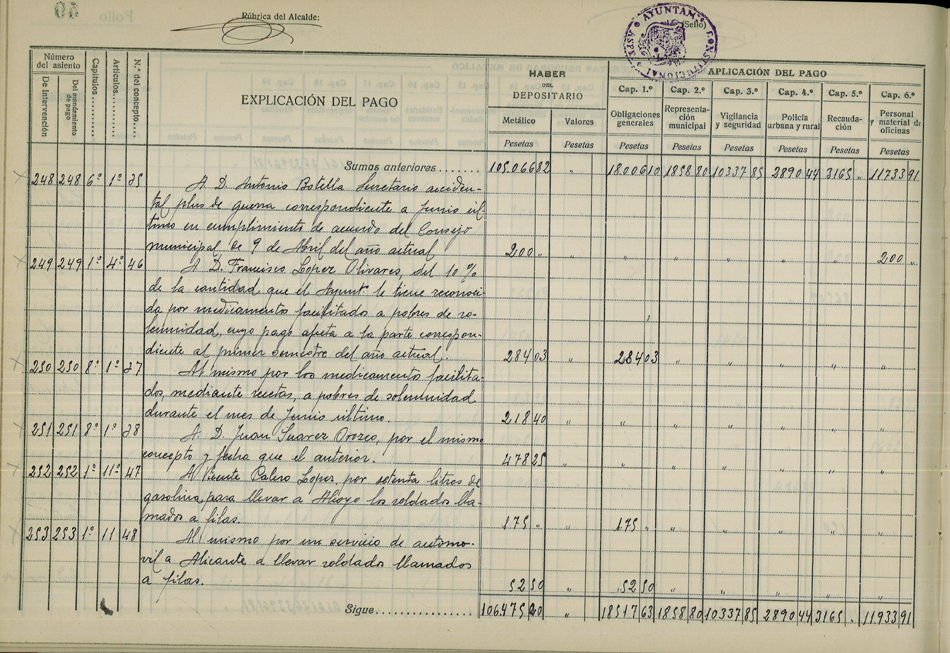 Rúbrica del Alcalde:
(Sello)
AYUNTAM CONSTITUCIONAL ASPE
Número del asiento
De Intervención
Del mandamiento de pago
Capítulos
Artículos
N.º del concepto
EXPLICACIÓN DEL PAGO
HABER DEL DEPOSITARIO
Metálico
Pesetas
Valores
Pesetas
APLICACIÓN DEL PAGO
Cap. 1.º Cap. 2.º Cap. 3.º Cap. 4.º Cap. 5.º Cap. 6.º
Obligaciones generales
Representación municipal
Vigilancia y seguridad
Policía urbana y rural
Recaudación
Personal y material de oficinas
Pesetas Pesetas Pesetas Pesetas Pesetas Pesetas
Sumas anteriores....... 105.066 82 " 18006 10 1858 80 10337 85 2890 44 3165 " 11733 91
248 248 6º 1º 25 A D. Antonio Botella Secretario acciden-
tal plus de guerra correspondiente a Junio úl-
timo en cumplimiento de acuerdo del Consejo
municipal de 9 de Abril del año actual 200 " " " " " " " 200 "
249 249 1º 4º 46 A D. Francisco López Olivares, del 10 %
de la cantidad que el Ayunt.º le tiene reconoci-
da por medicamentos facilitados a pobres de so-
lemnidad, cuyo pago afecta a la parte correspon-
diente al primer semestre del año actual. 284 03 " 284 03 " " " " "
250 250 8º 1º 27 Al mismo por los medicamento facilita-
dos, mediante recetas, a pobres de solemnidad
durante el mes de Junio último. 218 40
251 251 8º 1º 28 A D. Juan Suarez Orozco, por el mismo
concepto y fecha que el anterior. 478 25 " " " " " " "
252 252 1º 11º 47 A Vicente Calero Lopez, por setenta litros de
gasolina para llevar a Alcoy los soldados lla-
mados a filas. 175 " " 175 " " " " " "
253 253 1º 11 48 Al mismo por un servicio de automo-
vil a Alicante a llevar soldados llamados
a filas. 52 50 52 50 " " " " "
Sigue............... 106.475 20 " 18517 63 1858 80 10337 85 2890 44 3165 " 11933 91